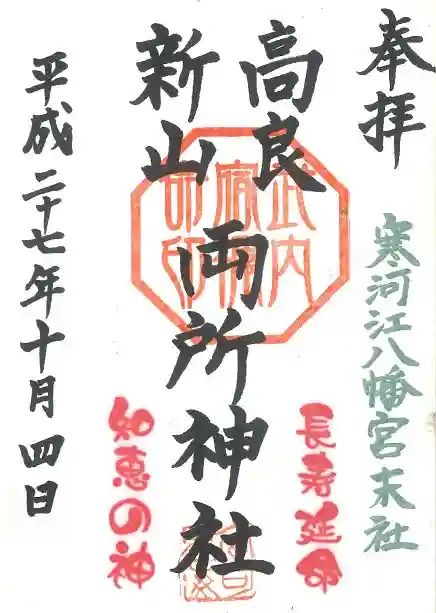 奉拝
寒河江八幡宮末社
長寿延命
高良
新山
両所神社
知恵の神
平成二十七年十月四日